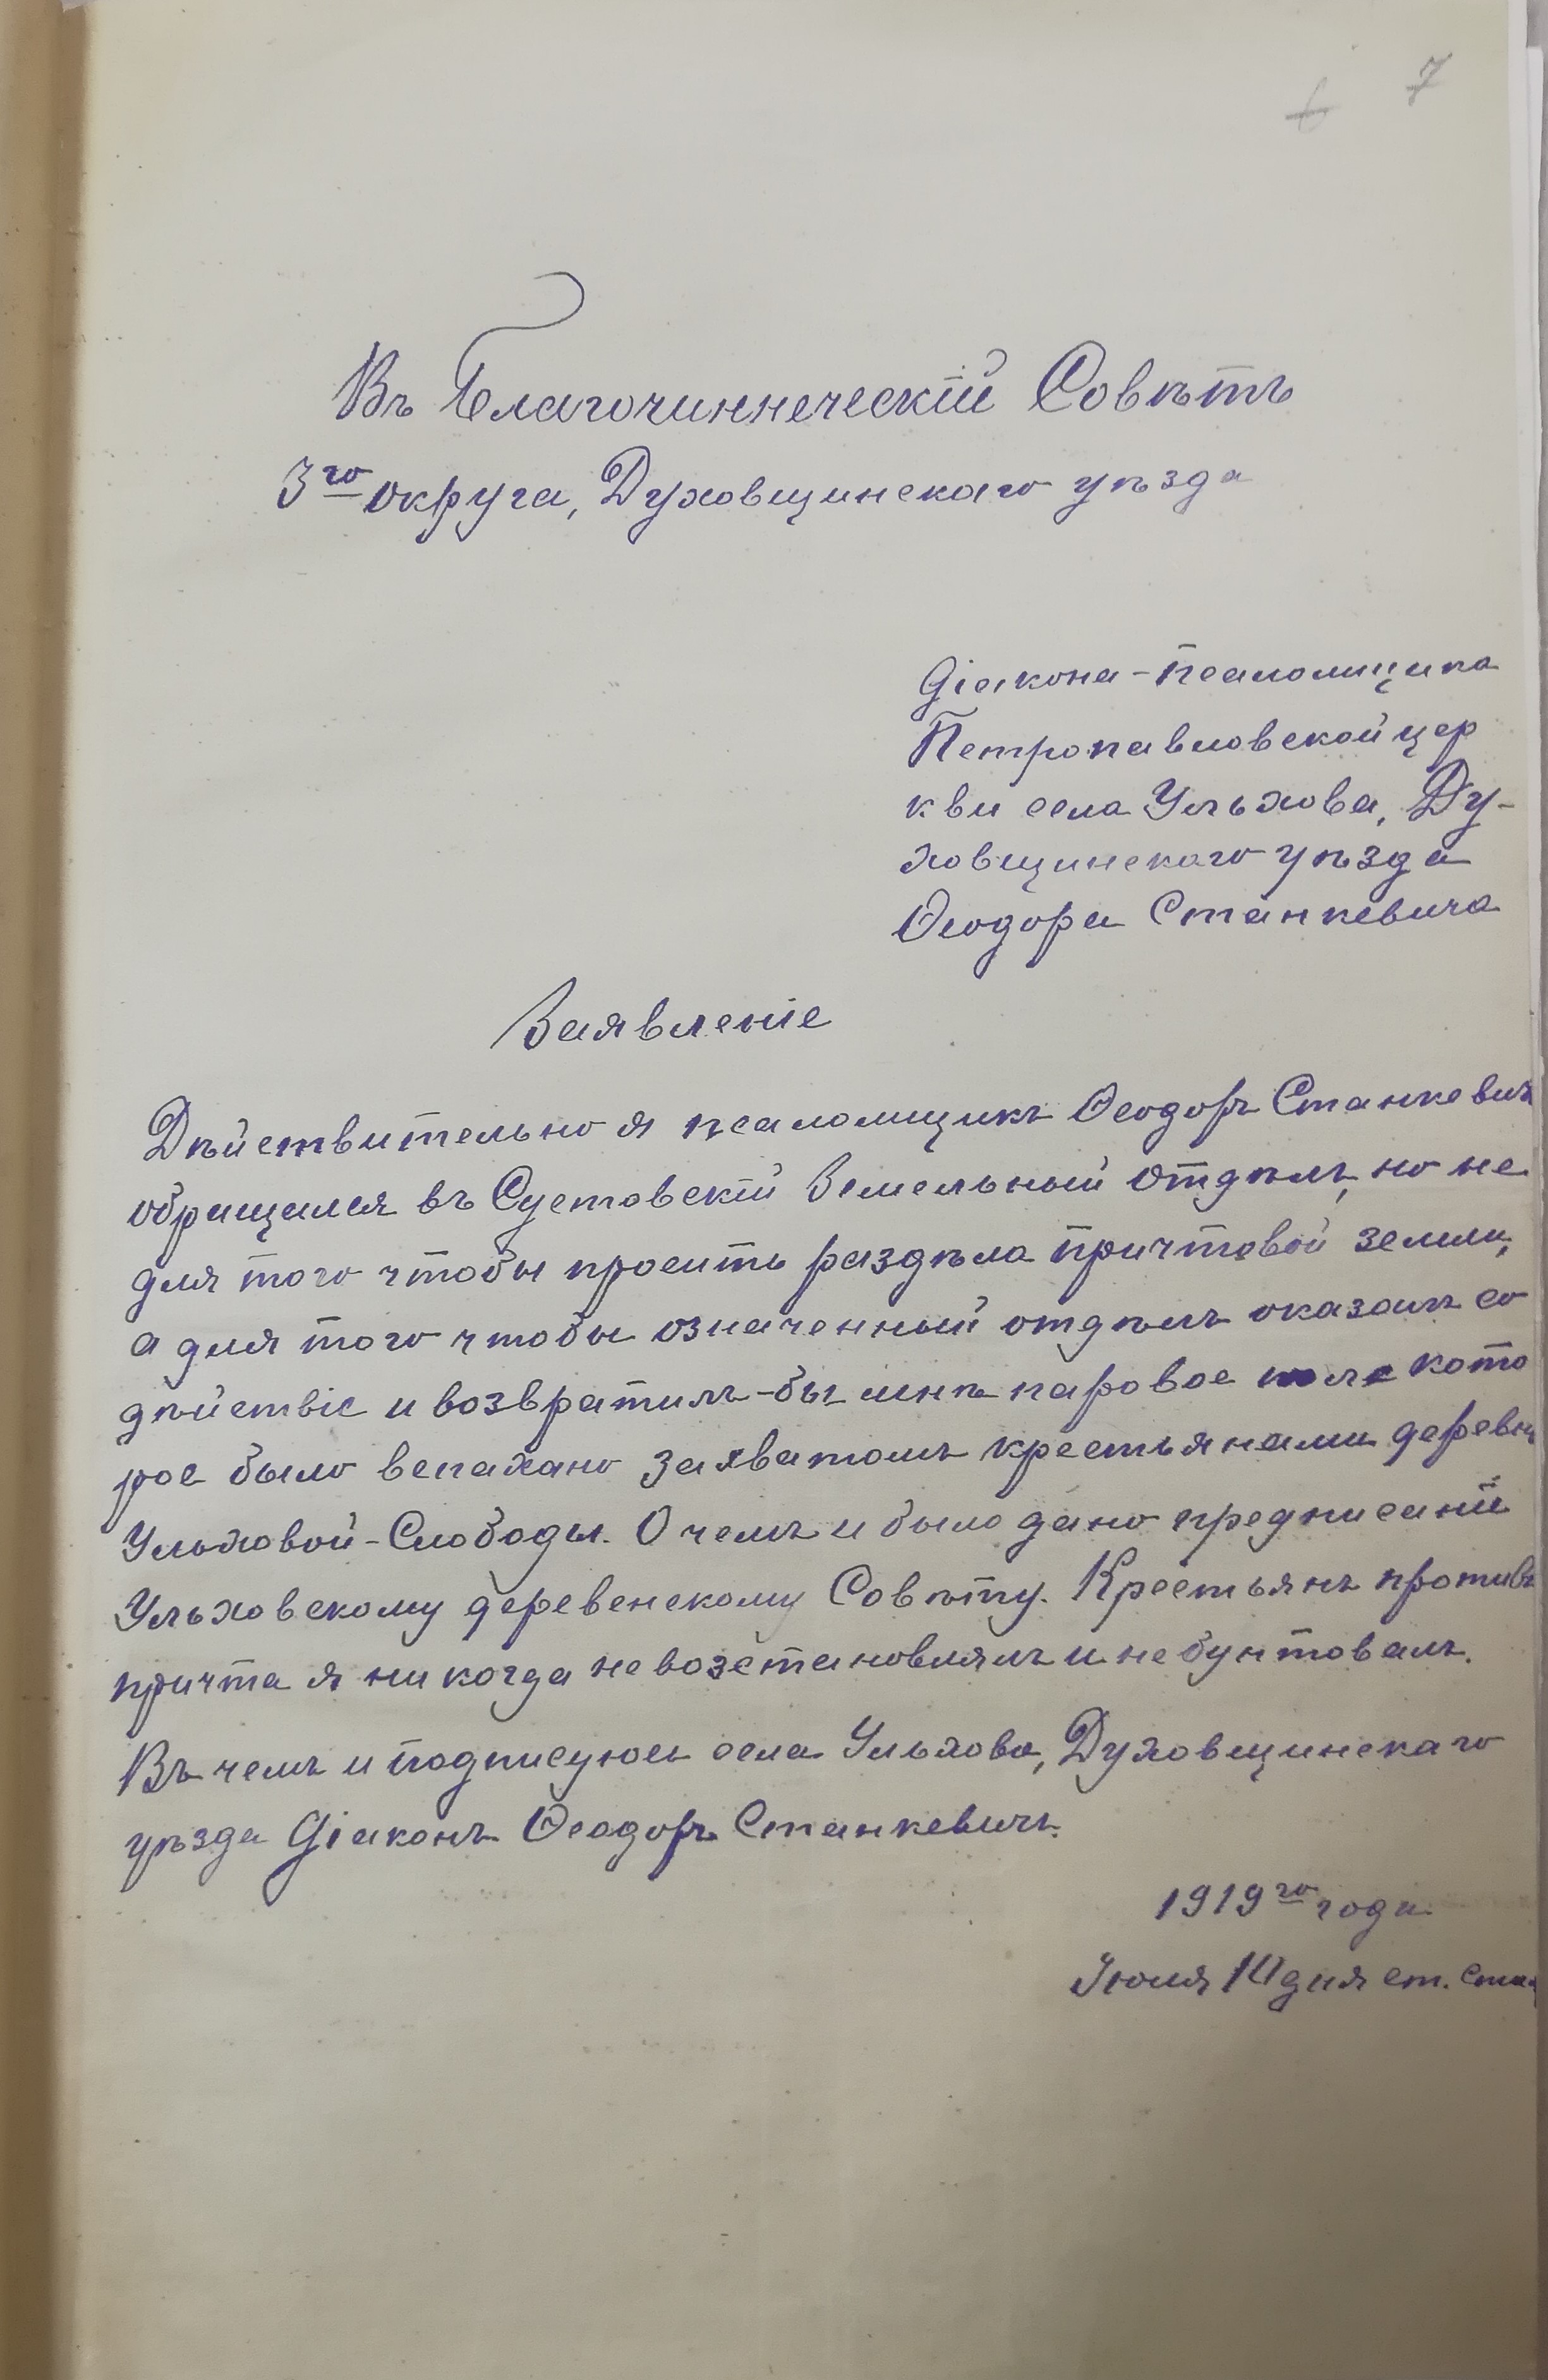 6 7
Въ Благочинническій Совѣтъ
3го округа, Духовщинскаго уѣзда
Діакона-псаломщика
Петропавловской цер
кви села Ульхова, Ду-
ховщинскаго уѣзда
Ѳеодора Станкевича
Заявленіе
Дѣйствительно я псаломщикъ Ѳеодоръ Станкевичъ
обращался въ Суетовскій Земельный Отдѣлъ, но не
для того чтобы просить раздѣла причтовой земли,
а для того чтобы означенный отдѣлъ оказалъ со
дѣйствіе и возвратилъ-бы мнѣ паровое поле кото
рое было вспахано захватомъ крестьянами деревни
Ульховой-Слободы. О чемъ и было дано предписаніи
Ульховскому деревенскому Совѣту. Крестьянъ противъ
причта я никогда не возстановлялъ и не бунтовалъ.
Въ чемъ и подписуюсь села Ульхова, Духовщинскаго
уѣзда Діаконъ Ѳеодоръ Станкевичъ.
1919го года
Іюля дня ст.